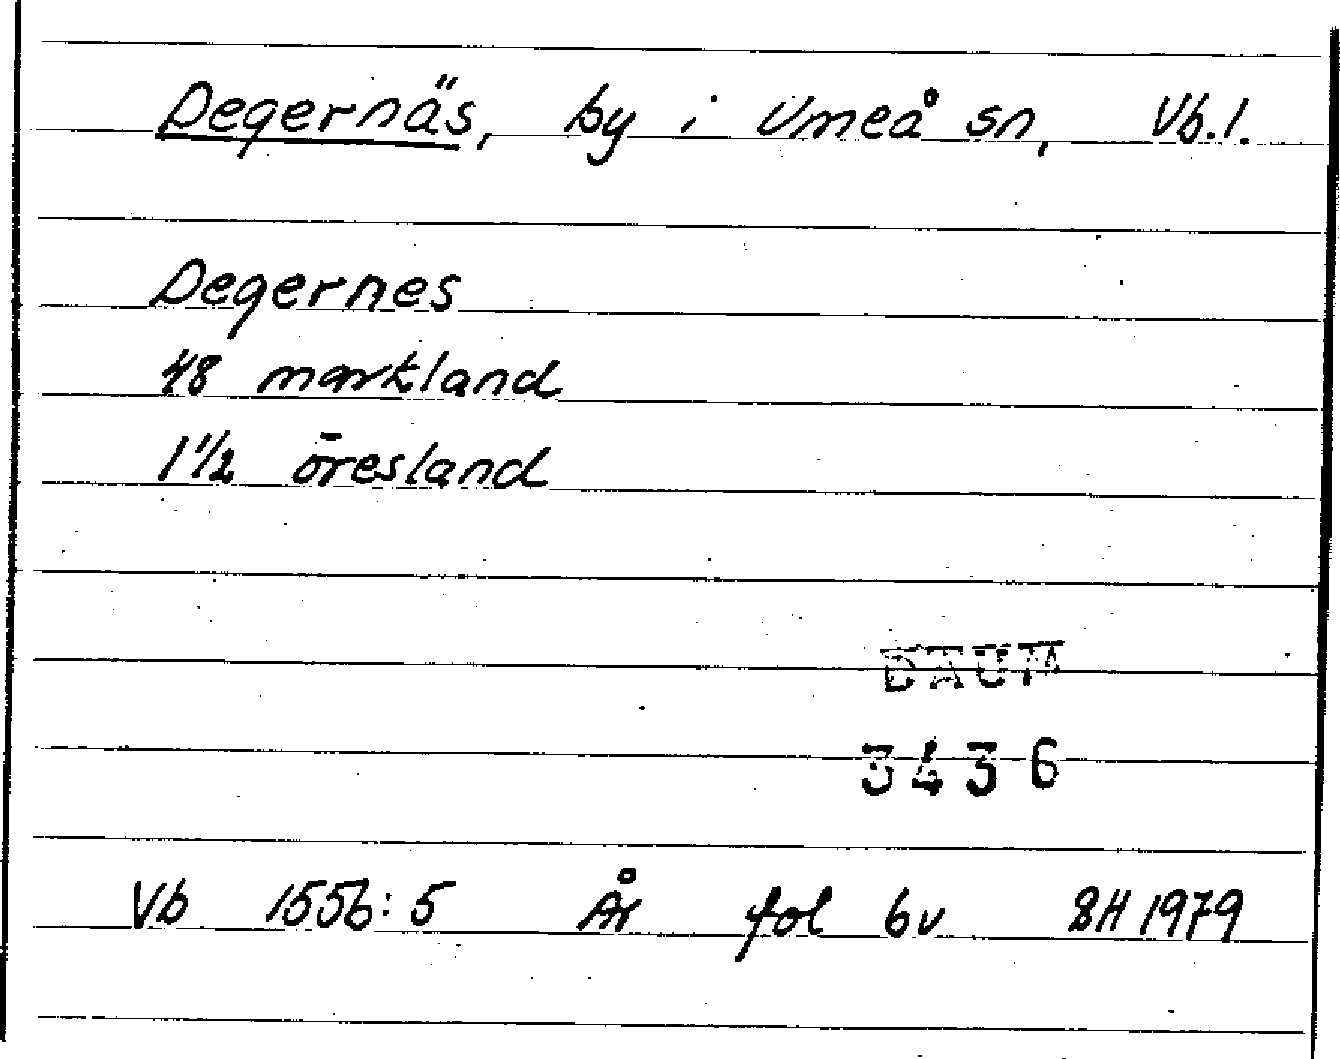 Degernäs, by i Umeå sn, Vb.l.
Degernes
48 markland
1 1/2 öresland
DAUM
3436
Vb 1556:5 År fol 6v SH 1979